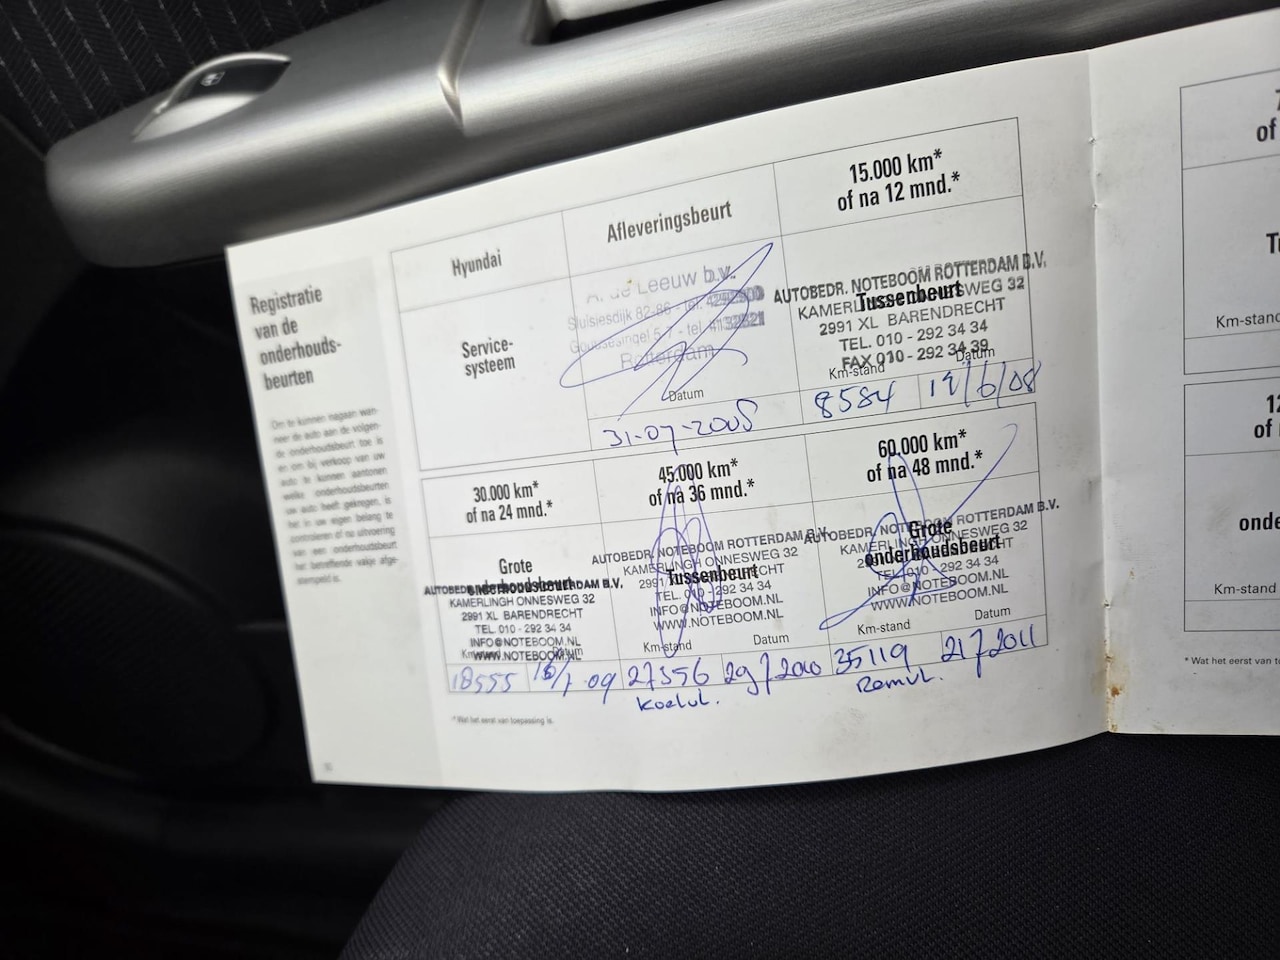 Registratie
van de
onderhouds-
beurten
Om te kunnen nagaan wan-
neer de auto aan de volgen-
de onderhoudsbeurt toe is
en om bij verkoop van uw
auto te kunnen aantonen
welke onderhoudsbeurten
uw auto heeft gekregen, is
het in uw eigen belang te
controleren of na uitvoering
van een onderhoudsbeurt
het betreffende vakje afge-
stempeld is.
Hyundai
Afleveringsbeurt
15.000 km*
of na 12 mnd.*
Service-
systeem
A. de Leeuw b.v.
Sluisjesdijk 82-86 - tel.
Rotterdam
Datum
31-07-2008
AUTOBEDR. NOTEBOOM ROTTERDAM B.V.
Tussenbeurt
KAMERLINGH ONNESWEG 32
2991 XL BARENDRECHT
TEL. 010 - 292 34 34
FAX 010 - 292 34 39
Km-stand
Datum
8584
19/6/08
30.000 km*
of na 24 mnd.*
45.000 km*
of na 36 mnd.*
60.000 km*
of na 48 mnd.*
Grote
onderhoudsbeurt
AUTOBEDR. NOTEBOOM ROTTERDAM B.V.
KAMERLINGH ONNESWEG 32
2991 XL BARENDRECHT
TEL. 010 - 292 34 34
INFO@NOTEBOOM.NL
WWW.NOTEBOOM.NL
Km-stand
Datum
18555
09
AUTOBEDR. NOTEBOOM ROTTERDAM B.V.
KAMERLINGH ONNESWEG 32
2991 XL BARENDRECHT
Tussenbeurt
TEL. 010 - 292 34 34
INFO@NOTEBOOM.NL
WWW.NOTEBOOM.NL
Km-stand
Datum
27356
29/7 2010
Koelvl.
AUTOBEDR. NOTEBOOM ROTTERDAM B.V.
Grote
KAMERLINGH ONNESWEG 32
onderhoudsbeurt
2991 XL BARENDRECHT
TEL. 010 - 292 34 34
INFO@NOTEBOOM.NL
WWW.NOTEBOOM.NL
Km-stand
Datum
35119
21 7 2011
Remvl.
* Wat het eerst van toepassing is.
of
Km-stand
12
of
onde
Km-stand
* Wat het eerst van to